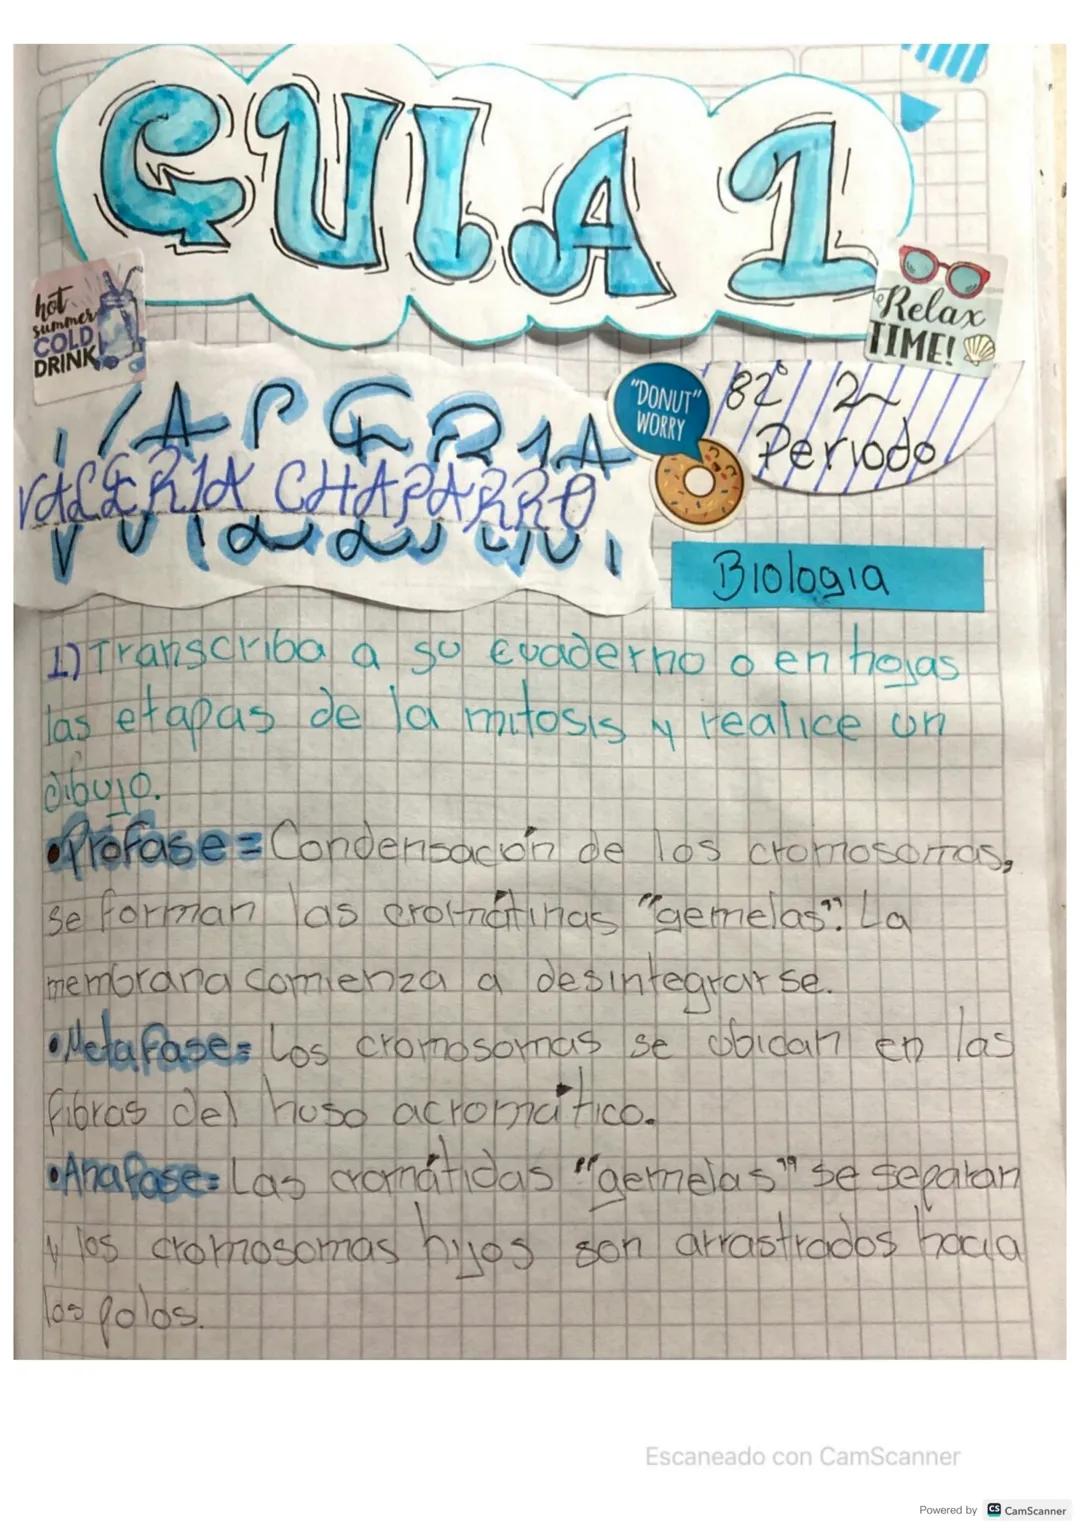 GUIA 1
hot
summer
COLD
DRINK
Relax
TIME!
"DONUT"
WORRY
82° 2
Periodo
VALERIA CHAPARRO
Biologia
1) Transcriba a su cuaderno o en hojas
las etapas de la mitosis y realice un
dibujo.
•Profase= Condensación de los cromosomas,
se forman las cromátinas "gemelas". La
membrana comienza a desintegrarse.
•Metafase= Los cromosomas se ubican en las
fibras del huso acromático.
•Anafase= Las cromátidas "gemelas" se separan
y los cromosomas hijos son arrastrados hacia
los polos.
Escaneado con CamScanner
Powered by CS CamScanner